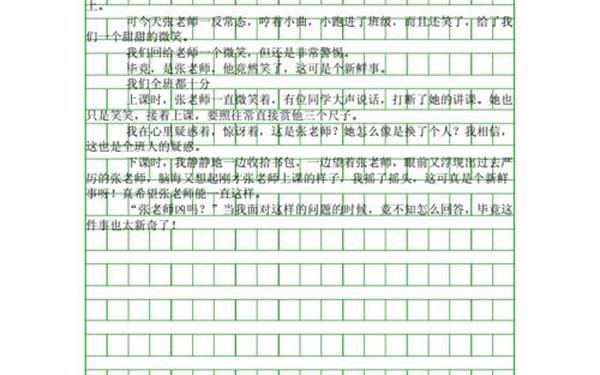 上。
可今天张老师一反常态，哼着小曲，小跑进了班级，而且还笑了，给了我
们一个甜甜的微笑。
我们回给老师一个微笑，但还是非常警惕。
毕竟，是张老师，他竟然笑了，这可是个新鲜事。
我们全班都十分
上课时，张老师一直微笑着，有位同学大声说话，打断了她的讲课。她也
只是笑笑，接着上课，要照往常直接赏他三个尺子。
我在心里疑惑着，惊讶着，这是张老师？她怎么像是换了个人？我相信，
这也是全班人的疑惑。
下课时，我静静地一边收拾书包，一边望着张老师，眼前又浮现出过去严
厉的张老师，脑海又想起刚才张老师上课的样子，我摇了摇头，这可真是个新鲜
事呀！真希望张老师能一直这样。
“张老师凶吗？”当我面对这样的问题的时候，竟不知怎么回答，毕竟这
件事也太新奇了！